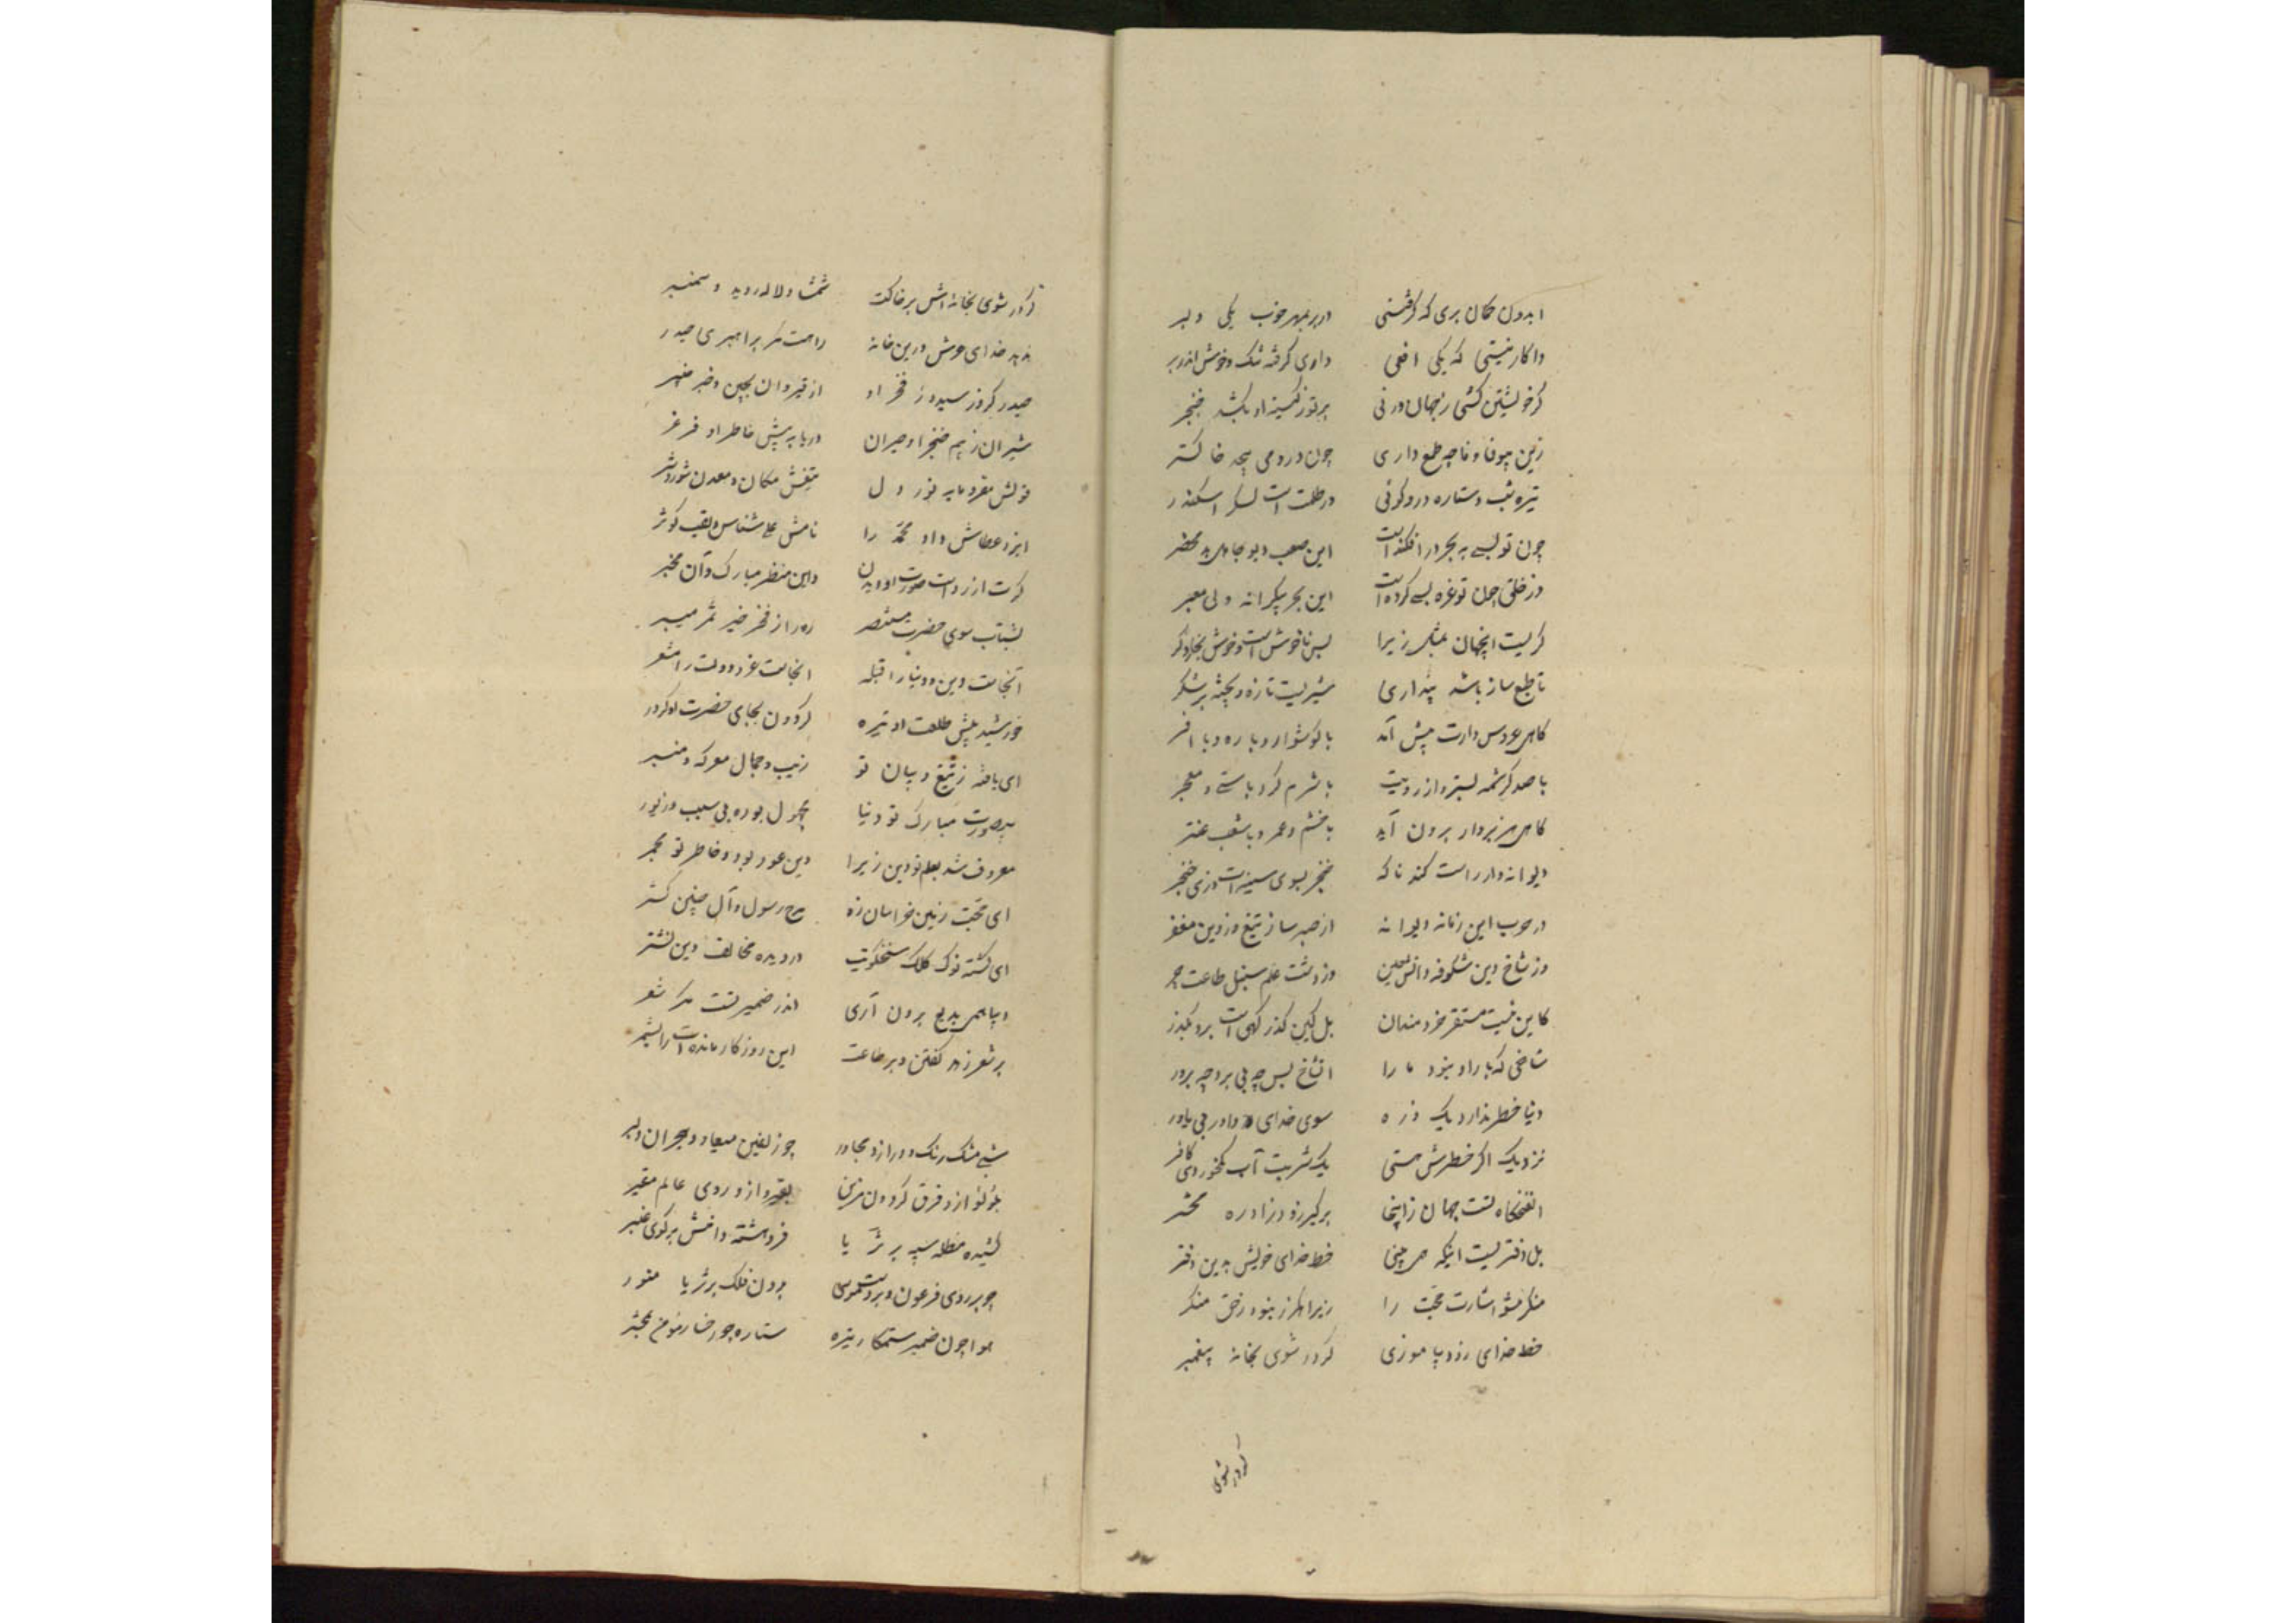 ایدون گمان بری که گرفتستی در بر بمهر خوب یکی دلبر
واگاه نیستی که یکی افعی داری گرفته تنگ و خوش اندر بر
گر خویشتن کشی ز جهان ورنی بر تو ز کینه او بکشد خنجر
زین بیوفا وفا چه طمع داری چون در دمی به بیخته خاکستر
تیره شب و ستاره درو گوئی در ظلمت است لشکر اسکندر
چون تو بسی به بحر در افکنده است این صعب دیو جاهل بد محضر
وز خلق چون تو غرقه بسی کرده است این بحر بیکرانه و بی معبر
گریست این جهان بمثل زیرا بس ناخوش است و خوش بخارد گر
با طبع ساز باشد پنداری شیریست تازه و پخته بر شکر
گاهی عروس وارت پیش آید با گوشوار و یاره و با افسر
با صد کرشمه بسترد از رویت با شرم گرد باستی و معجر
گاهی هزبروار برون آید با خشم عمر و با شغب عنتر
دیوانه‌وار راست کند ناگه خنجر بسوی سینه‌ات وزی حنجر
در حرب این زمانه دیوانه از صبر ساز تیغ وز دین مغفر
وز شاخ دین شکوفه دانش چین وز دشت علم سنبل طاعت چر
کاین نیست مستقر خردمندان بل کین گذرگهی است برو بگذر
شاخی که بار او نبود ما را آن شاخ پس چه بی بر و چه برور
دنیا خطر ندارد یک ذره سوی خدای داور بی یاور
نزدیک او اگر خطرش هستی یک شربت آب کی خوردی کافر
الفنجگاه تست جهان زاینجا برگیر زود زاد ره محشر
بل دفتریست اینکه همی بینی خط خدای خویش بدین دفتر
منکر مشو اشارت حجت را زیرا هرگز نبود ز حق منکر
خط خدای زود بیاموزی گر در شوی بخانه پیغمبر
گر در شوی
گر در شوی بخانه‌اش بر خاکت شمشاد و لاله روید و سیسنبر
ندهد خدای عرش درین خانه راهت مگر براهبری حیدر
حیدر که زو رسید و ز فخر او از قیروان بچین خبر خیبر
شیران ز بیم خنجر او حیران دریا به پیش خاطر او فرغر
قولش مقر و مایه نور دل تیغش مکان و معدن شور و شر
ایزد عطاش داد محمد را نامش علی شناس و لقب کوثر
گرت آرزوست صورت او دیدن واین منظر مبارک و آن مخبر
بشتاب سوی حضرت مستنصر ره را ز فخر جز مژه مسپر
آنجاست دین و دنیا را قبله آنجاست عز و دولت را مشعر
خورشید پیش طلعت او تیره گردون بجای حضرت او کردر
ای یافته ز تیغ و بیان تو زیب و جمال معرکه و منبر
بی صورت مبارک تو دنیا مجهول بود و بی سلب و زیور
معروف شد بعلم تو دین زیرا دین عود بود و خاطر تو مجمر
ای حجت زمین خراسان زه مدح رسول و آل چنین گستر
ای گشته نوک کلک سخنگویت در دیده مخالف دین نشتر
دیبا همی بدیع برون آری اندر ضمیر تست مگر ششتر
بر شعر زهد گفتن و بر طاعت این روزگار مانده‌ات را بشمر
شبی مشک رنگ و دراز و مجاور چو زلفین میعاد و هجران دلبر
بلؤلؤ ازو فرق گردون مزین بقیر ازو روی عالم مقیر
کشیده مظله سیه بر ثریا فروهشته دامنش بر گوی اغبر
چو بر روی فرعون و بر دست موسی بدون فلک بر ثریا منور
هوا چون ضمیر ستمکار تیره ستاره چو رخسار مؤمن بمحشر